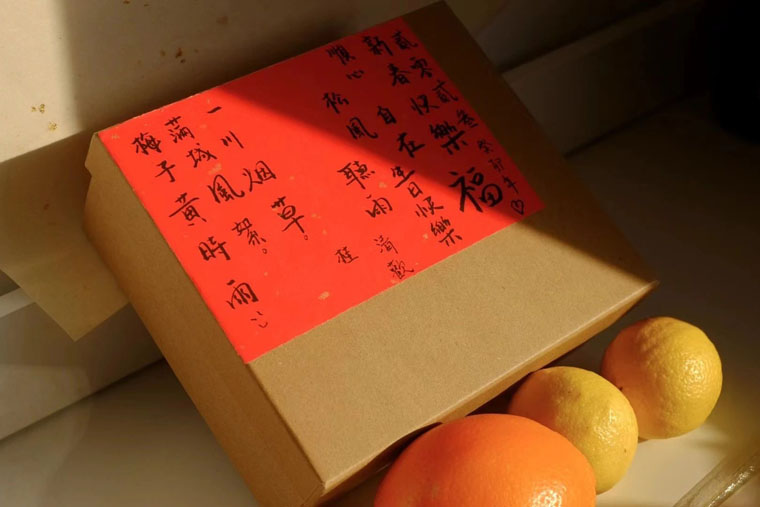 貳零貳叁 癸卯年♡
新春快樂 福
順心自在 生日快樂
松風聽雨 清歡
一川烟草。
滿城風絮。
梅子黃時雨